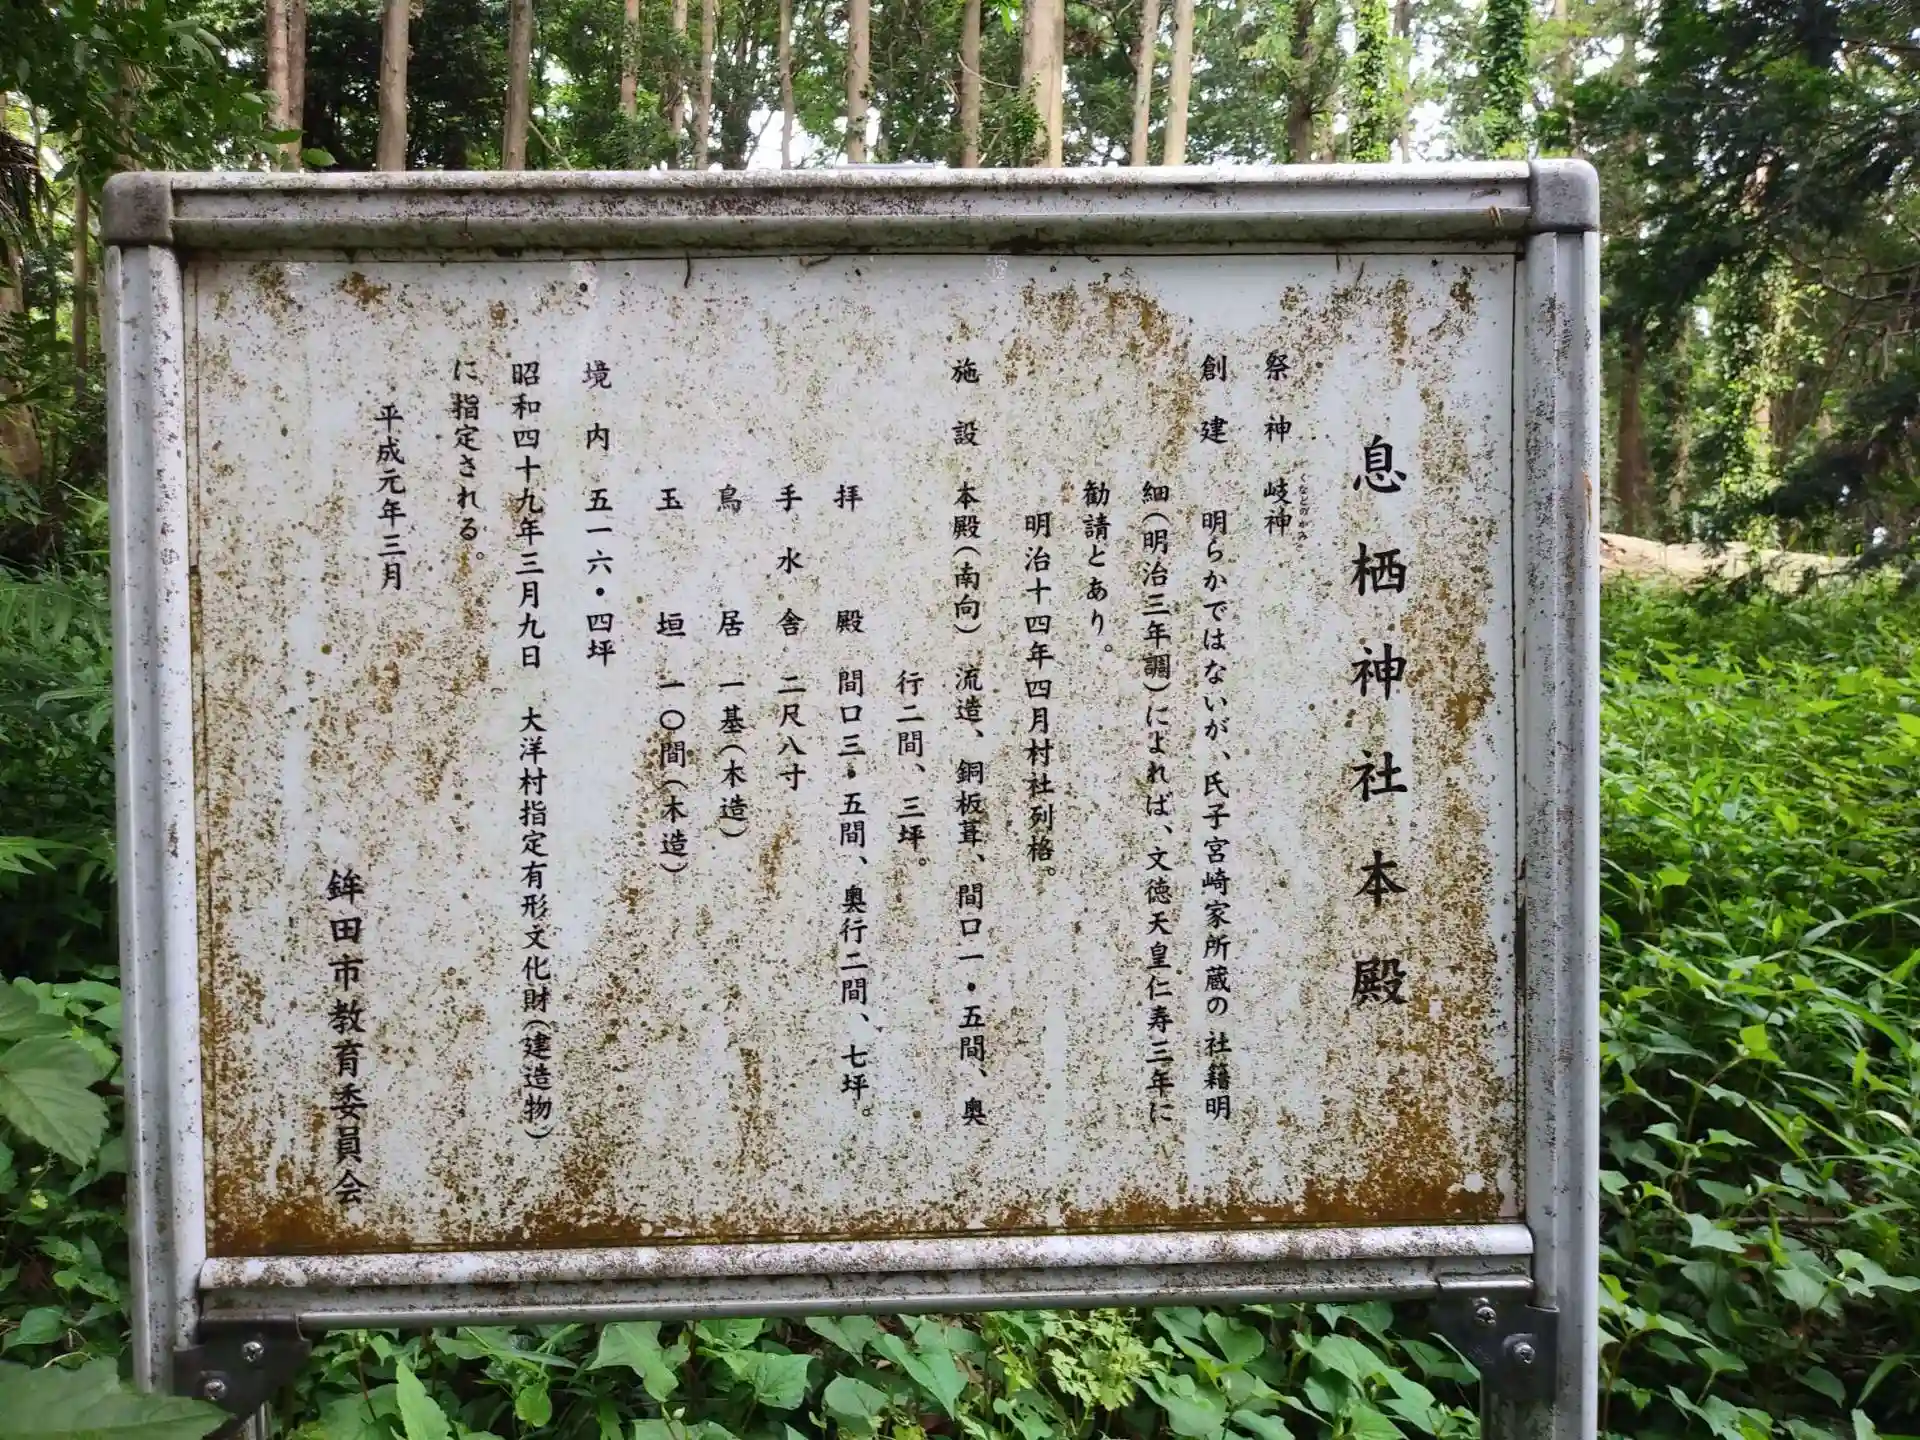 息栖神社本殿
祭神 岐神
くなどのかみ
創建 明らかではないが、氏子宮崎家所蔵の社籍明
細(明治三年調)によれば、文徳天皇仁寿三年に
勧請とあり。
明治十四年四月村社列格。
施設 本殿(南向) 流造、銅板葺、間口一・五間、奥
行二間、三坪。
拝殿 間口三・五間、奥行二間、七坪。
手水舎 二尺八寸
鳥居 一基(木造)
玉垣 一〇間(木造)
境内 五一六・四坪
昭和四十九年三月九日 大洋村指定有形文化財(建造物)
に指定される。
平成元年三月
鉾田市教育委員会